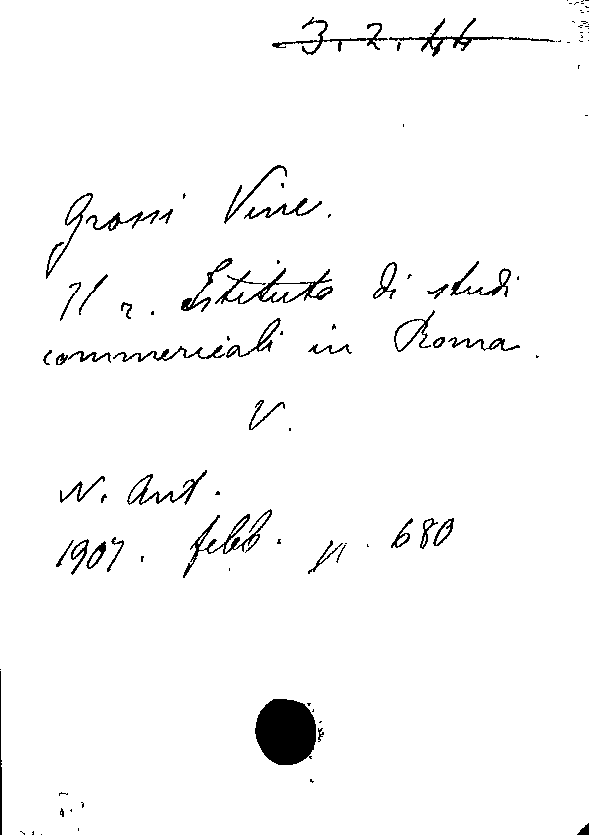 3.2.44
Grossi Vinc.
Il r. Istituto di studi
commerciali in Roma.
V.
N. Ant.
1907. febb. p. 680